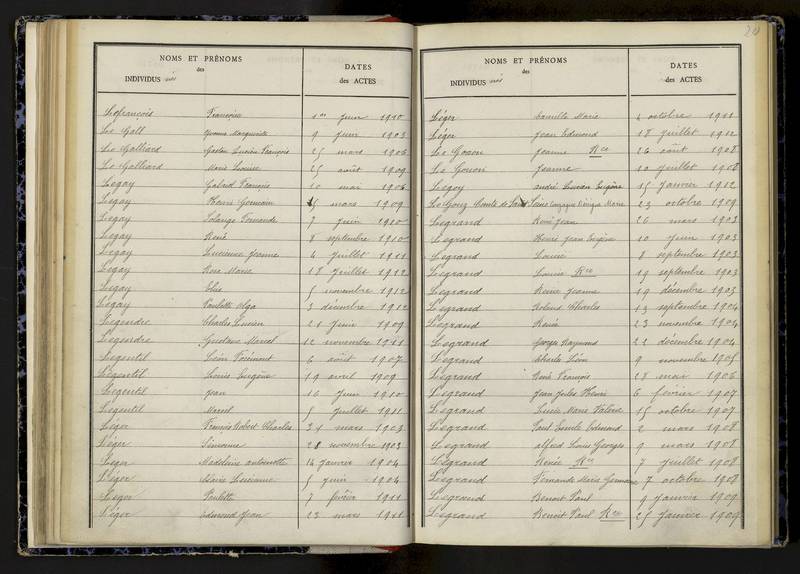 NOMS ET PRÉNOMS
des
INDIVIDUS nés
DATES
des ACTES
Lefrançois Françoise 1er juin 1910
Le Gall Yvonne Marguerite 9 juin 1903
Le Galliard Gaston Lucien François 25 mars 1906
Le Galliard Marie Louise 25 août 1909
Legay Gabriel François 10 mai 1906
Legay Germain mars 1909
Legay Solange Fernande 7 juin 1910
Legay René 8 septembre 1910
Legay Lucienne Jeanne 4 juillet 1911
Legay Rose Marie 18 juillet 1912
Legay Elise 5 novembre 1912
Legay Paulette Olga 3 décembre 1912
Legendre Charles Lucien 21 juin 1909
Legendre Gustave Marcel 12 novembre 1911
Legentil Léon 6 août 1907
Legentil Louis Eugène 19 avril 1909
Legentil Jean 16 juin 1910
Legentil Marcel 5 juillet 1911
Léger François Robert Charles 31 mars 1903
Léger Simonne 28 novembre 1903
Léger Madeleine Antoinette 14 janvier 1904
Léger Lucienne 5 juin 1904
Léger Paulette 7 février 1911
Léger Edmond Jean 23 mars 1911
20
NOMS ET PRÉNOMS
des
INDIVIDUS nés
DATES
des ACTES
Léger Camille Marie 4 octobre 1911
Léger Jean Edmond 18 juillet 1912
Le Goaon Jeanne Rce 26 août 1908
Le Gouon Jeanne 10 juillet 1908
Legoy André Lucien Eugène 15 janvier 1912
Le Gouz Comte de Saint Seine Marie 23 octobre 1909
Legrand René Jean 26 mars 1903
Legrand Henri Jean Eugène 10 juin 1903
Legrand Louise 8 septembre 1903
Legrand Louise Rce 19 septembre 1903
Legrand Jeanne 19 décembre 1903
Legrand Roland Charles 13 septembre 1904
Legrand Renée 23 novembre 1904
Legrand Georges Raymond 22 décembre 1904
Legrand Charles Léon 9 novembre 1905
Legrand René François 28 mai 1906
Legrand Jean Jules Henri 6 février 1907
Legrand Lucie Marie Valérie 15 octobre 1907
Legrand Paul Emile Edmond 2 mars 1908
Legrand Alfred Louis Georges 9 mars 1908
Legrand Renée Rce 7 juillet 1908
Legrand Fernande Marie Germaine 7 octobre 1908
Legrand Benoit Paul 9 janvier 1909
Legrand Benoit Paul Rce 25 janvier 1909